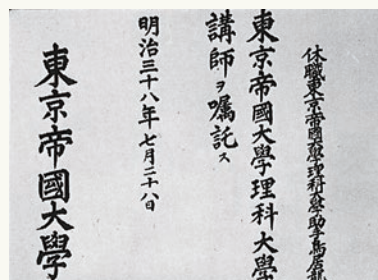 休職東京帝國大學理科大學助手鳥居龍
東京帝國大學理科大學
講師ヲ囑託ス
明治三十八年七月二十八日
東京帝國大學